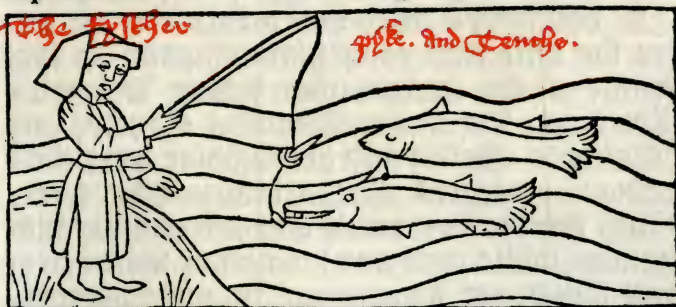 The Fyssher
pyke. And Tenche.